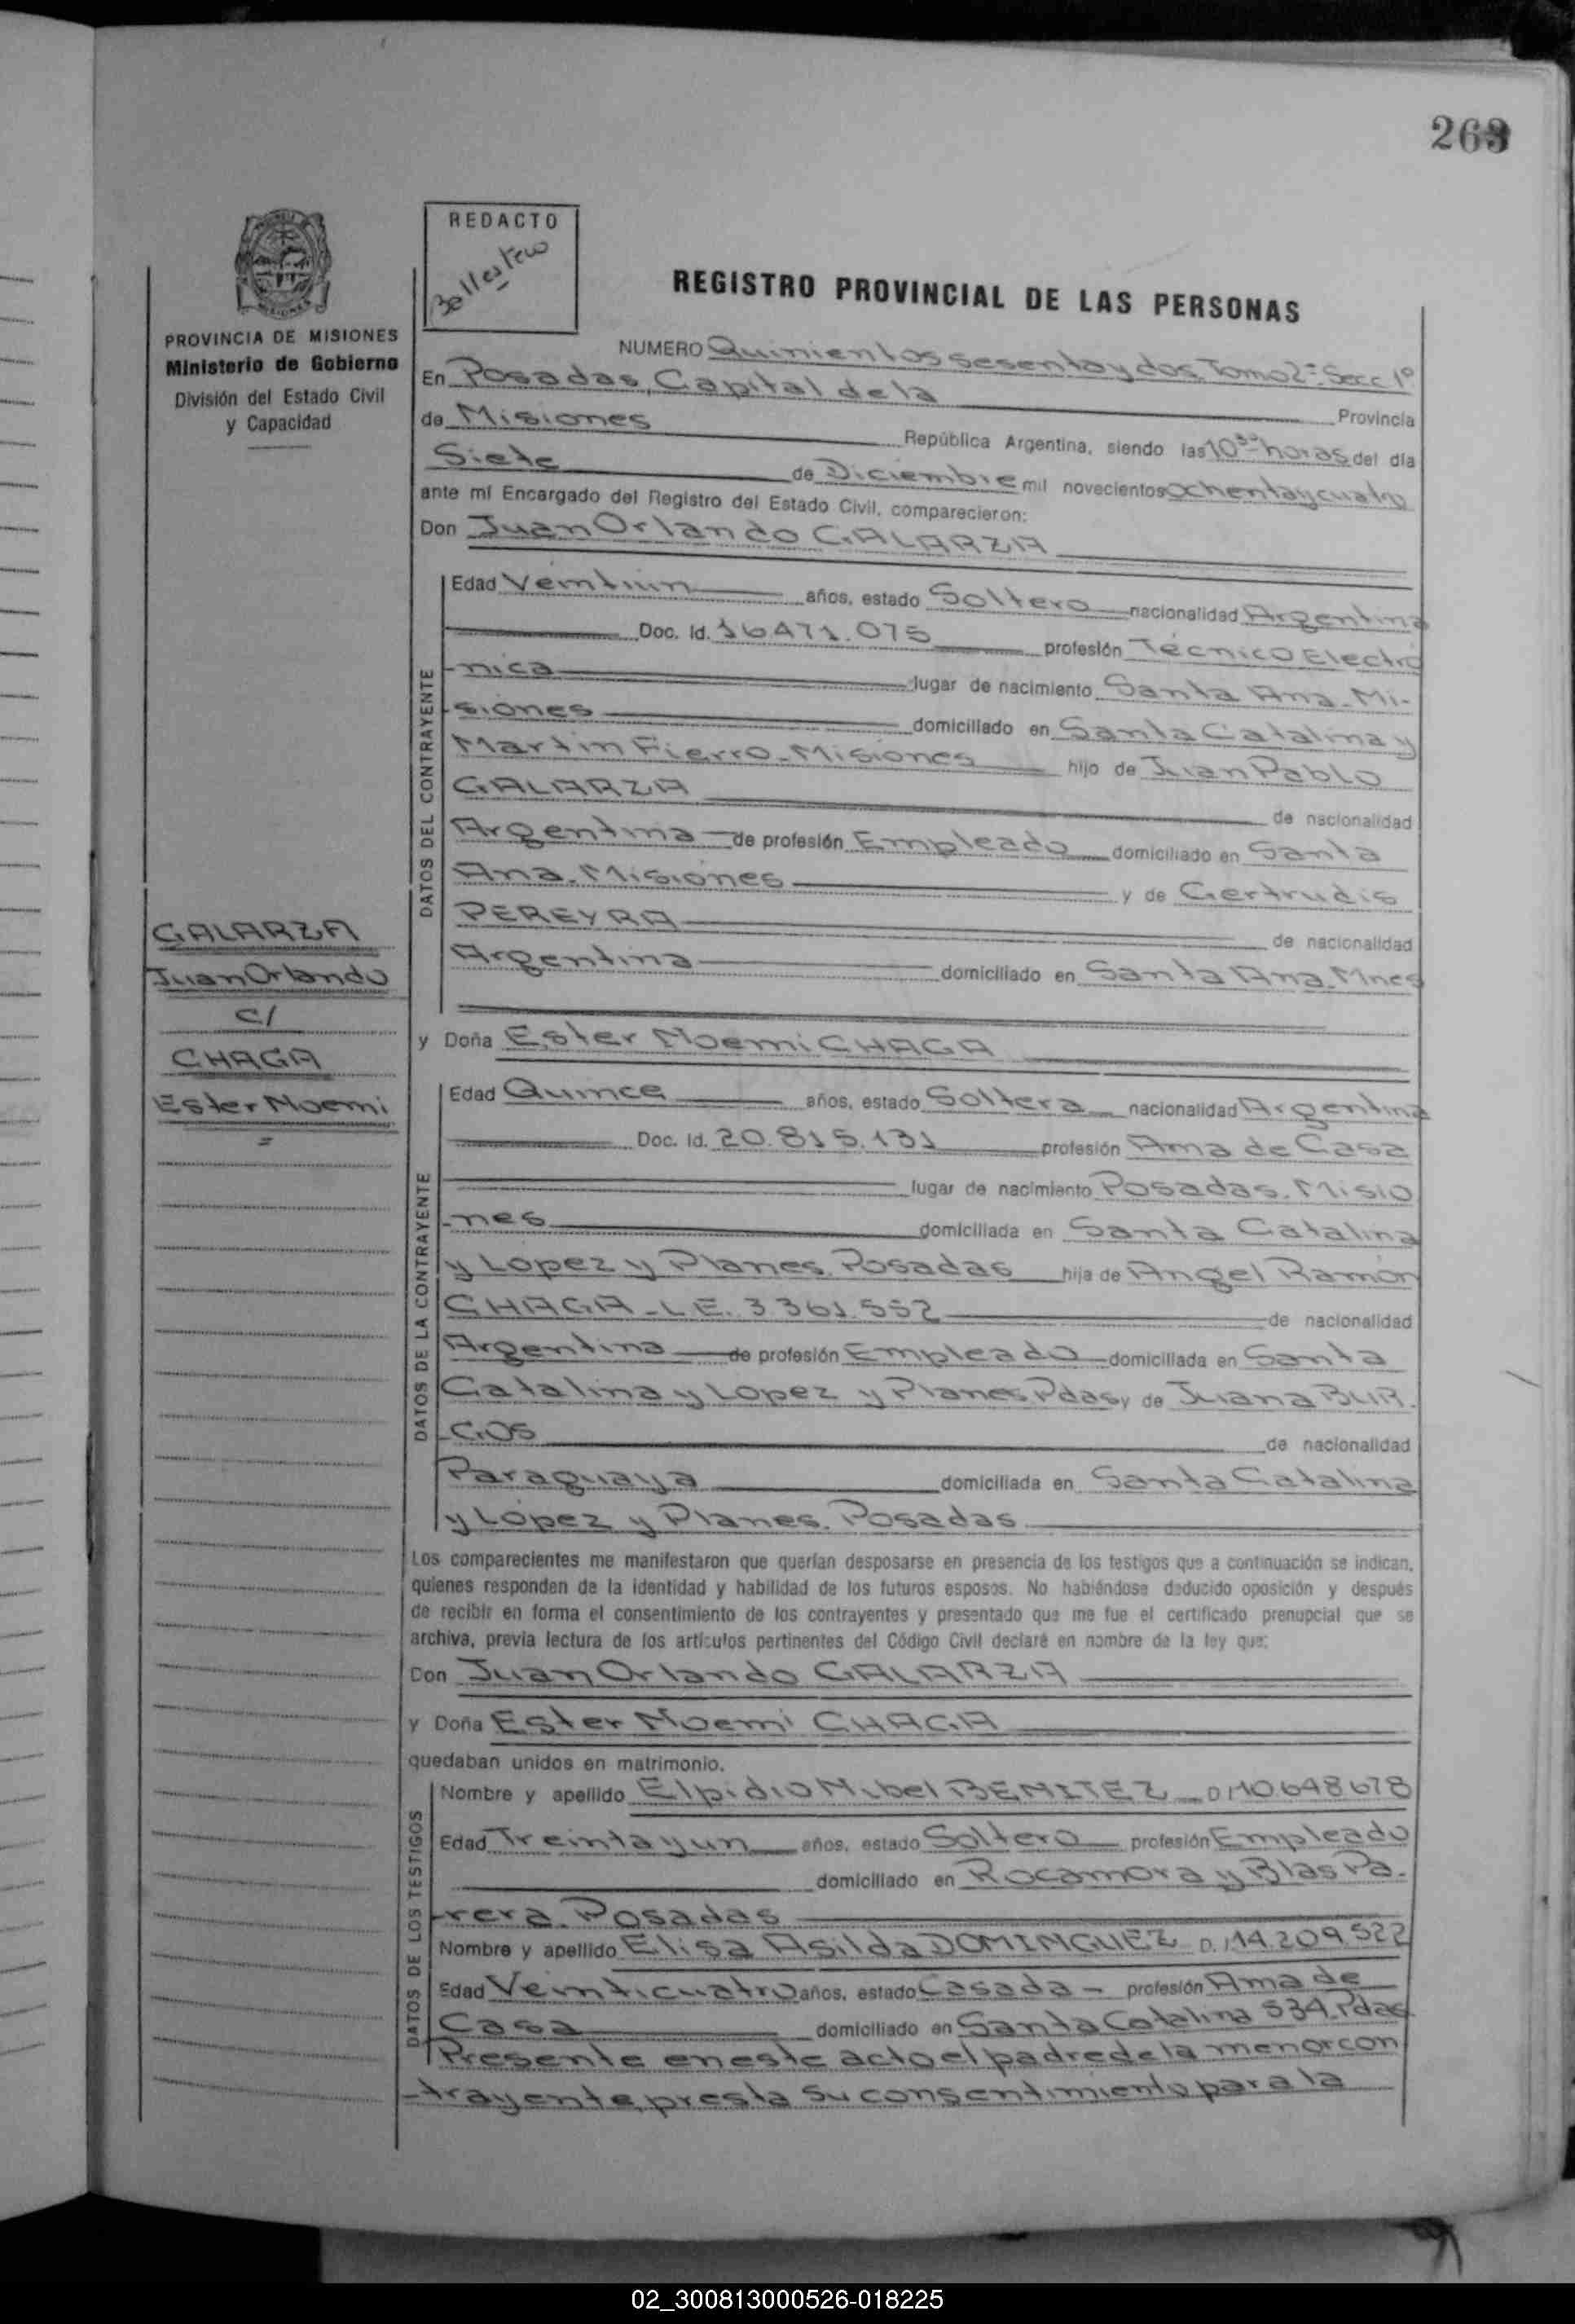 263
REDACTO
Ballestero
REGISTRO PROVINCIAL DE LAS PERSONAS
PROVINCIA DE MISIONES
Ministerio de Gobierno
División del Estado Civil
y Capacidad
NUMERO Quinientos sesenta y dos Tomo 2º Secc 1º
En Posadas, Capital de la Provincia
de Misiones República Argentina, siendo las 10³⁰ horas del día
Siete de Diciembre mil novecientos ochenta y cuatro
ante mí Encargado del Registro del Estado Civil, comparecieron:
Don Juan Orlando GALARZA
DATOS DEL CONTRAYENTE
Edad Veintiun años, estado Soltero nacionalidad Argentina
Doc. Id. 16471.075 profesión Técnico Electró
-nica lugar de nacimiento Santa Ana-Mi-
-siones domiciliado en Santa Catalina y
Martin Fierro-Misiones hijo de Juan Pablo
GALARZA de nacionalidad
Argentina de profesión Empleado domiciliado en Santa
Ana-Misiones y de Gertrudis
PEREYRA de nacionalidad
Argentina domiciliado en Santa Ana-Mnes
GALARZA
Juan Orlando
C/
CHAGA
Ester Noemi
=
y Doña Ester Noemi CHAGA
DATOS DE LA CONTRAYENTE
Edad Quince años, estado Soltera nacionalidad Argentina
Doc. Id. 20.815.131 profesión Ama de Casa
lugar de nacimiento Posadas-Misio
-nes domiciliada en Santa Catalina
y Lopez y Planes. Posadas hija de Angel Ramón
CHAGA-L.E. 3.361.552 de nacionalidad
Argentina de profesión Empleado domiciliada en Santa
Catalina y Lopez y Planes Pdas y de Juana BUR-
-GOS de nacionalidad
Paraguaya domiciliada en Santa Catalina
y López y Planes. Posadas
Los comparecientes me manifestaron que querían desposarse en presencia de los testigos que a continuación se indican,
quienes responden de la identidad y habilidad de los futuros esposos. No habiéndose deducido oposición y después
de recibir en forma el consentimiento de los contrayentes y presentado que me fue el certificado prenupcial que se
archiva, previa lectura de los artículos pertinentes del Código Civil declaré en nombre de la ley que:
Don Juan Orlando GALARZA
y Doña Ester Noemi CHAGA
quedaban unidos en matrimonio.
DATOS DE LOS TESTIGOS
Nombre y apellido Elpidio Nibel BENITEZ D.I 10.648.678
Edad Treinta y un años, estado Soltero profesión Empleado
domiciliado en Rocamora y Blas Pa-
-rera. Posadas
Nombre y apellido Elisa Asilda DOMINGUEZ D.I 14.209.522
Edad Veinticuatro años, estado Casada - profesión Ama de
Casa domiciliado en Santa Catalina 534. Pdas
Presente en este acto el padre de la menor con
-trayente, presta su consentimiento para la
02_300813000526-018225